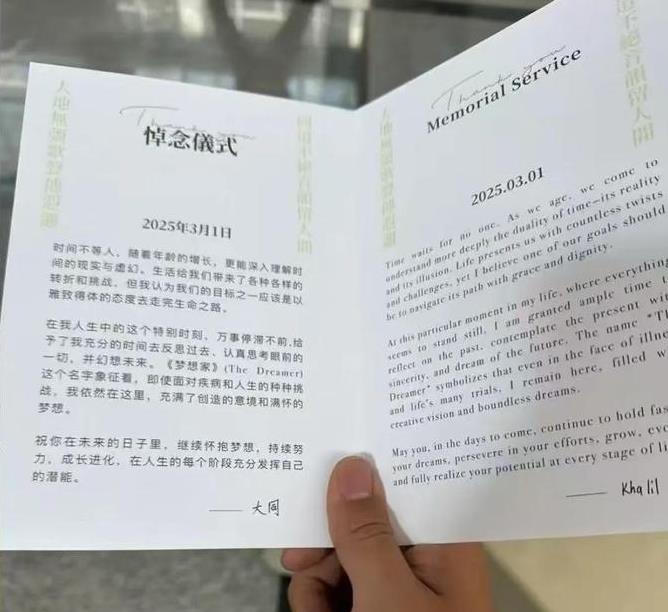 Thank you
悼念儀式
2025年3月1日
时间不等人，随着年龄的增长，更能深入理解时
间的现实与虚幻。生活给我们带来了各种各样的
转折和挑战，但我认为我们的目标之一应该是以
雅致得体的态度去走完生命之路。
在我人生中的这个特别时刻，万事停滞不前，给
予了我充分的时间去反思过去、认真思考眼前的
一切，并幻想未来。《梦想家》(The Dreamer)
这个名字象征着，即使面对疾病和人生的种种挑
战，我依然在这里，充满了创造的意境和满怀的
梦想。
祝你在未来的日子里，继续怀抱梦想，持续努
力，成长进化，在人生的每个阶段充分发挥自己
的潜能。
—— 大同
Thank you
Memorial Service
2025.03.01
Time waits for no one. As we age, we come to
understand more deeply the duality of time—its reality
and its illusion. Life presents us with countless twists
and challenges, yet I believe one of our goals should
be to navigate its path with grace and dignity.
At this particular moment in my life, where everything
seems to stand still, I am granted ample time t
reflect on the past, contemplate the present wi
sincerity, and dream of the future. The name "Th
Dreamer" symbolizes that even in the face of illne
and life's many trials, I remain here, filled w
creative vision and boundless dreams.
May you, in the days to come, continue to hold fas
your dreams, persevere in your efforts, grow, evo
and fully realize your potential at every stage of li
—— Khalil